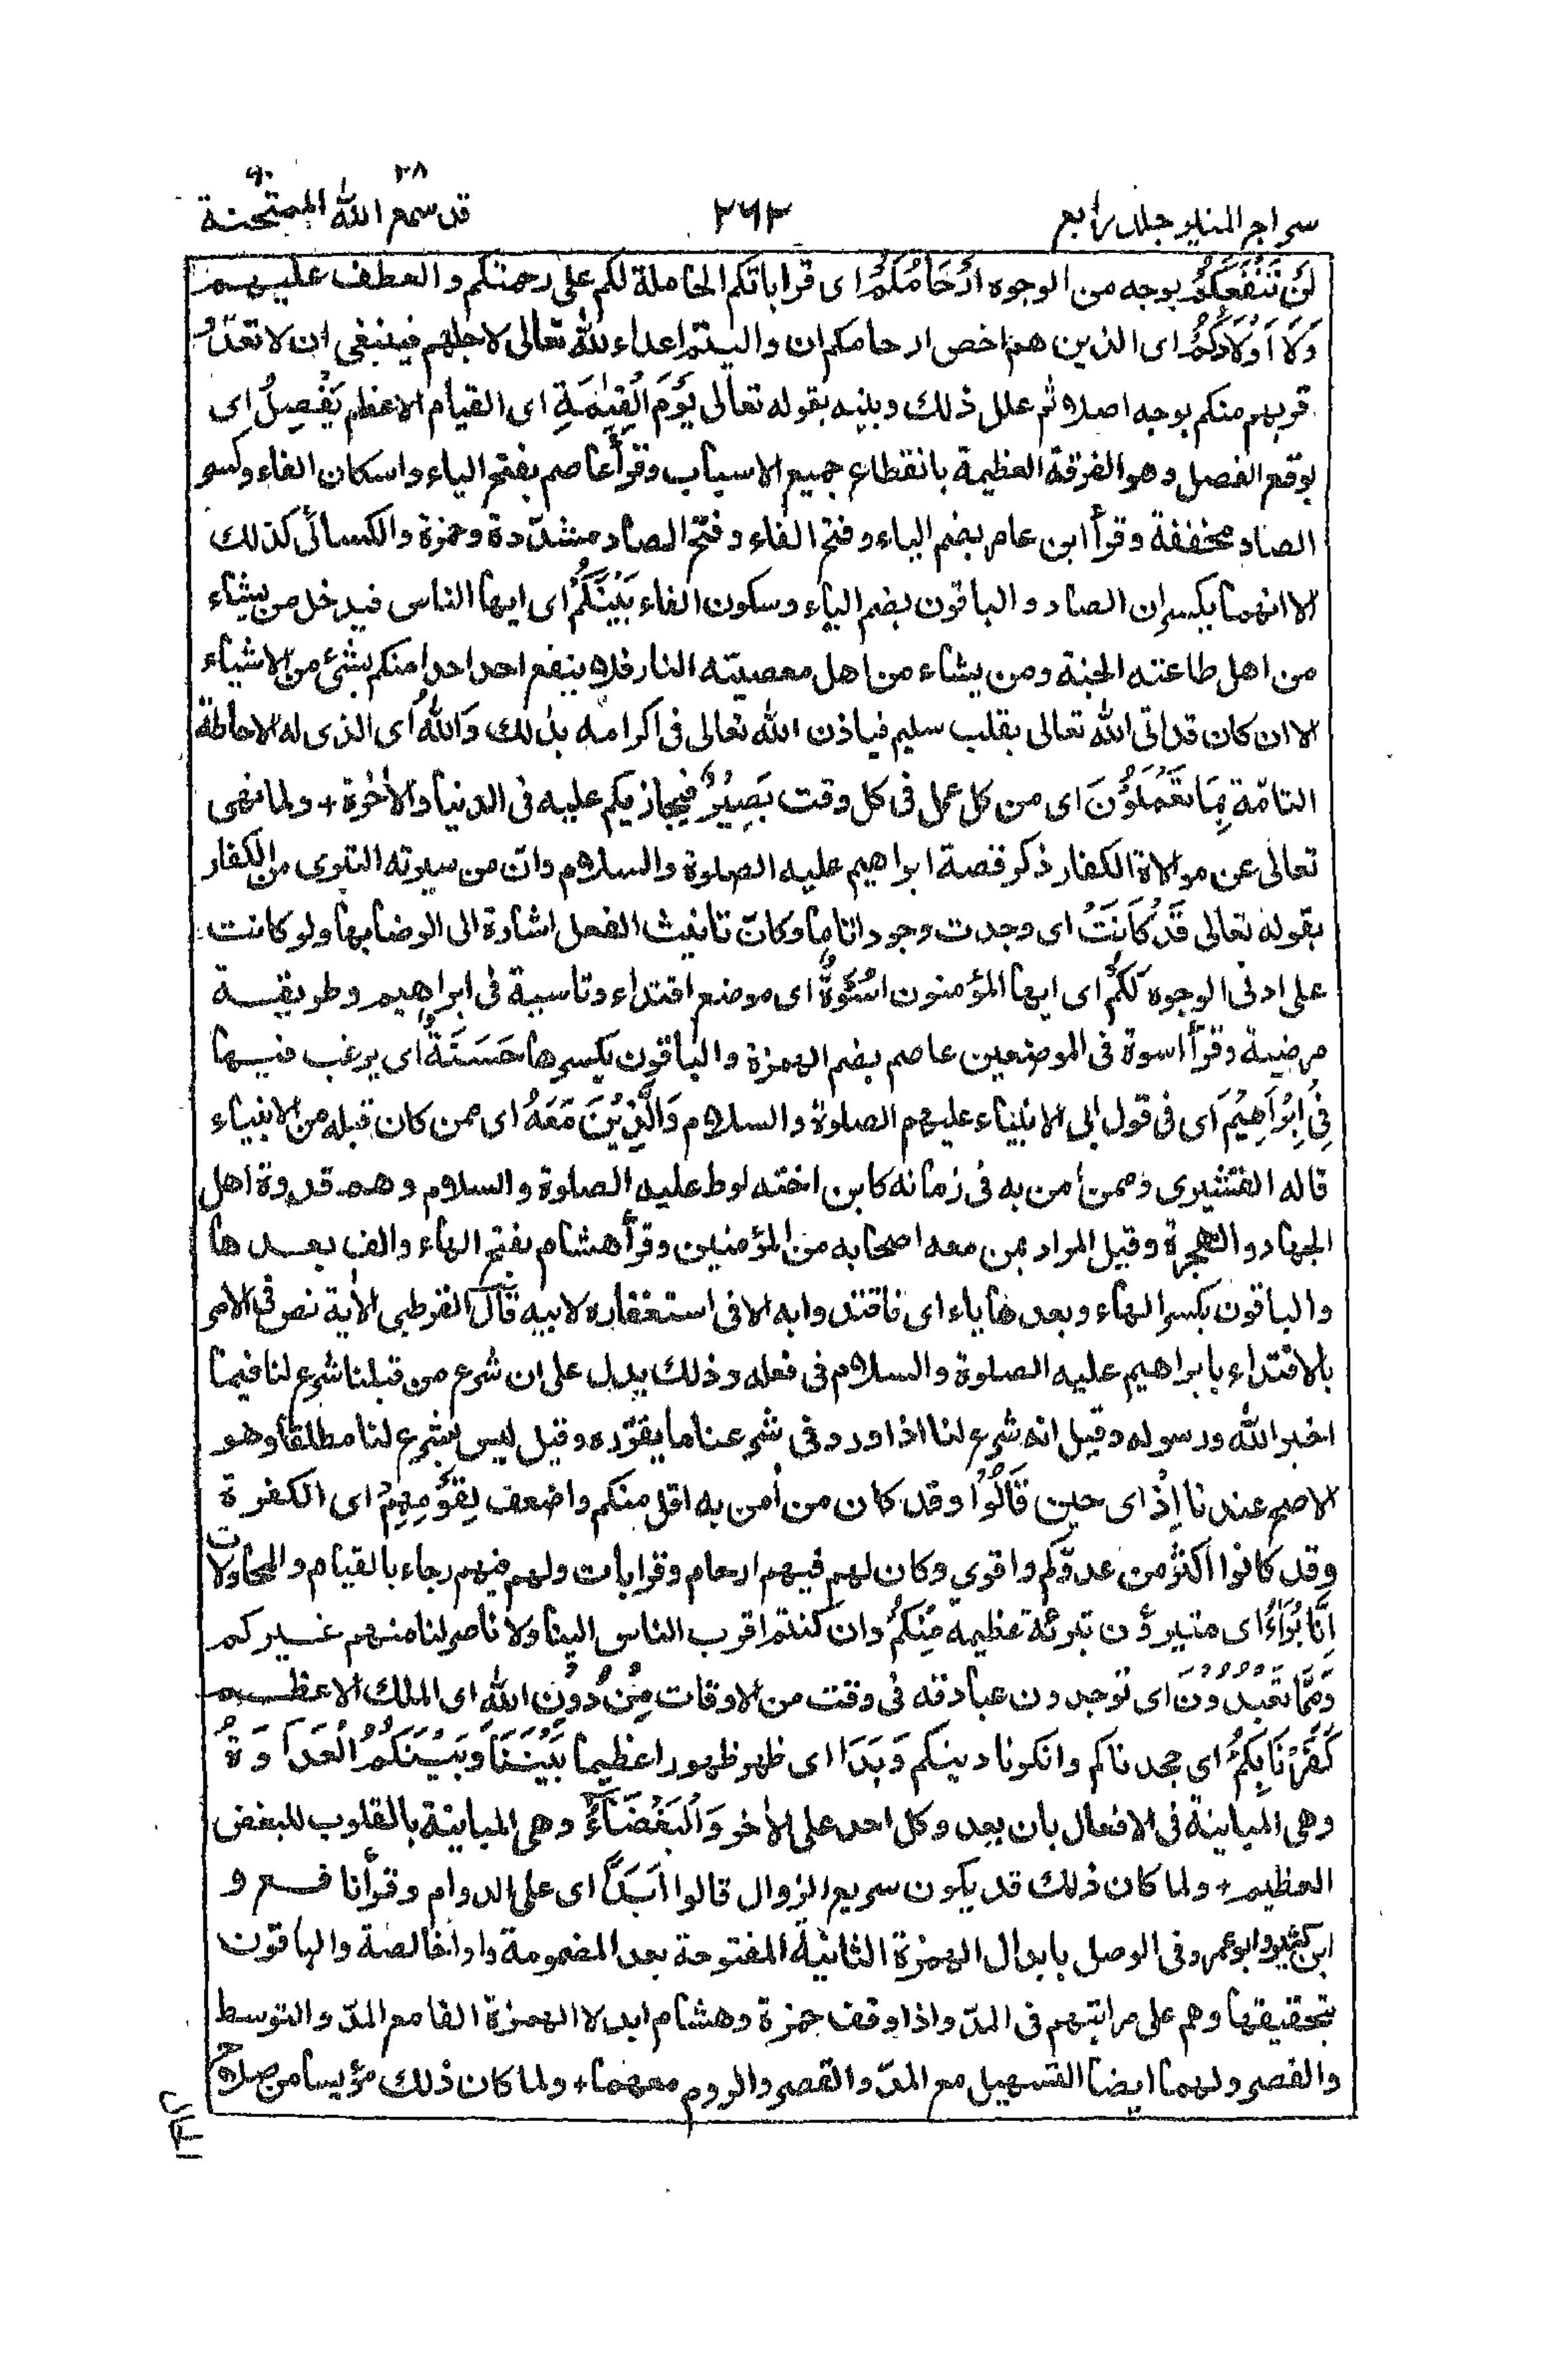 سراج المنير جلد رابع
٢٦٢
قد سمع الله ٢٨ الممتحنة ٦٠
لَنْ تَنْفَعَكُمْ بوجه من الوجوه اَرْحَامُكُمْ اى قراباتكم الحاملة لكم على رحمتكم و العطف عليهم
وَلَا اَوْلَادُكُمْ اى الذين هم اخص ارحامكم ان واليتم اعداء لله تعالى لاجلهم فينبغى ان لا تعدّوا
قربهم منكم بوجه اصلا ثم علل ذلك وبينه بقوله تعالى يَوْمَ الْقِيٰمَةِ اى القيام الاعظم يَفْصِلُ اى
يوقع الفصل وهو الفرقة العظيمة بانقطاع جميع الاسباب وقرأ عاصم بفتح الياء واسكان الفاء وكسر
الصاد مخففة وقرأ ابن عامر بضم الياء وفتح الفاء وفتح الصاد مشدّدة وحمزة والكسائى كذلك
الا انهما يكسران الصاد و الباقون بضم الياء وسكون الفاء بَيْنَكُمْ اى ايها الناس فيدخل من يشاء
من اهل طاعته الجنة ومن يشاء من اهل معصيته النار فلا ينفع احد احدا منكم بشئ من الاشياء
الا ان كان قد اتى الله تعالى بقلب سليم فياذن الله تعالى فى اكرامه بذلك وَاللهُ اى الذى له الاحاطة
التامّة بِمَا تَعْمَلُوْنَ اى من كل عمل فى كل وقت بَصِيْرٌ فيجازيكم عليه فى الدنيا والأخرة + ولما نهى
تعالى عن موالاة الكفار ذكر قصة ابراهيم عليه الصلوة والسلام وانّ من سيرته التبرى من الكفار
بقوله تعالى قَدْ كَانَتْ اى وجدت وجودا تاما وكانّ تانيث الفعل اشارة الى الرضا بها ولو كانت
على ادنى الوجوه لَكُمْ اى ايها المؤمنون اُسْوَةٌ اى موضع اقتداء وتاسية فى ابراهيم وطريقة
مرضية وقرأ اسوة فى الموضعين عاصم بضم الهمزة والباقون بكسرها حَسَنَةٌ اى يرغب فيها
فِىْ اِبْرَاهِيْمَ اى فى قول ابى الانبياء عليهم الصلوة والسلام وَالَّذِيْنَ مَعَهُ اى ممن كان قبله من الانبياء
قاله القشيرى وممن أمن به فى زمانه كابن اخته لوط عليه الصلوة والسلام وهم قدوة اهل
الجهاد والهجرة وقيل المراد بمن معه اصحابه من المؤمنين وقرأ هشام بفتح الهاء والف بعدها
والباقون بكسر الهاء وبعدها ياء اى فاقتدوا به الا فى استغفاره لابيه قال القرطبى الأية نص فى الامر
بالاقتداء بابراهيم عليه الصلوة والسلام فى فعله وذلك يدل على ان شرع من قبلنا شرع لنا فيما
اخبر الله ورسوله وقيل انه شرع لنا اذا ورد فى شرعنا ما يقرّره وقيل ليس بشرع لنا مطلقا وهو
الاصح عندنا اِذْ اى حين قَالُوْا وقد كان من أمن به اقل منكم واضعف لِقَوْمِهِمْ اى الكفرة
وقد كانوا اكثر من عدوّكم واقوى وكان لهم فيهم ارحام وقرابات ولهم فيهم رجاء بالقيام والمحاولات
اِنَّا بُرَآءُ اى متبرؤن تبرئة عظيمة مِنْكُمْ وان كنتم اقرب الناس الينا ولا ناصر لنا منهم غيركم
وَمِمَّا تَعْبُدُوْنَ اى توجدون عبادته فى وقت من الاوقات مِنْ دُوْنِ اللهِ اى الملك الاعظم
كَفَرْنَا بِكُمْ اى جحدناكم وانكرنا دينكم وَبَدَا اى ظهر ظهورا عظيما بَيْنَنَا وَبَيْنَكُمُ الْعَدَاوَةُ
وهى المباينة فى الافعال بان يعدو كل احد على الأخر وَالْبَغْضَآءُ وهى المباينة بالقلوب للبغض
العظيم + ولما كان ذلك قد يكون سريع الزوال قالوا اَبَدًا اى على الدوام وقرأ نافع و
ابن كثير وابو عمرو فى الوصل بابدال الهمزة الثانية المفتوحة بعد المضمومة واوا خالصة والباقون
بتحقيقها وهم على مراتبهم فى المدّ واذا وقف حمزة وهشام ابدلا الهمزة الفا مع المدّ والتوسط
والقصر ولهما ايضا التسهيل مع المدّ والقصر والروم معهما + ولما كان ذلك مؤيسا من صلاح
الحال